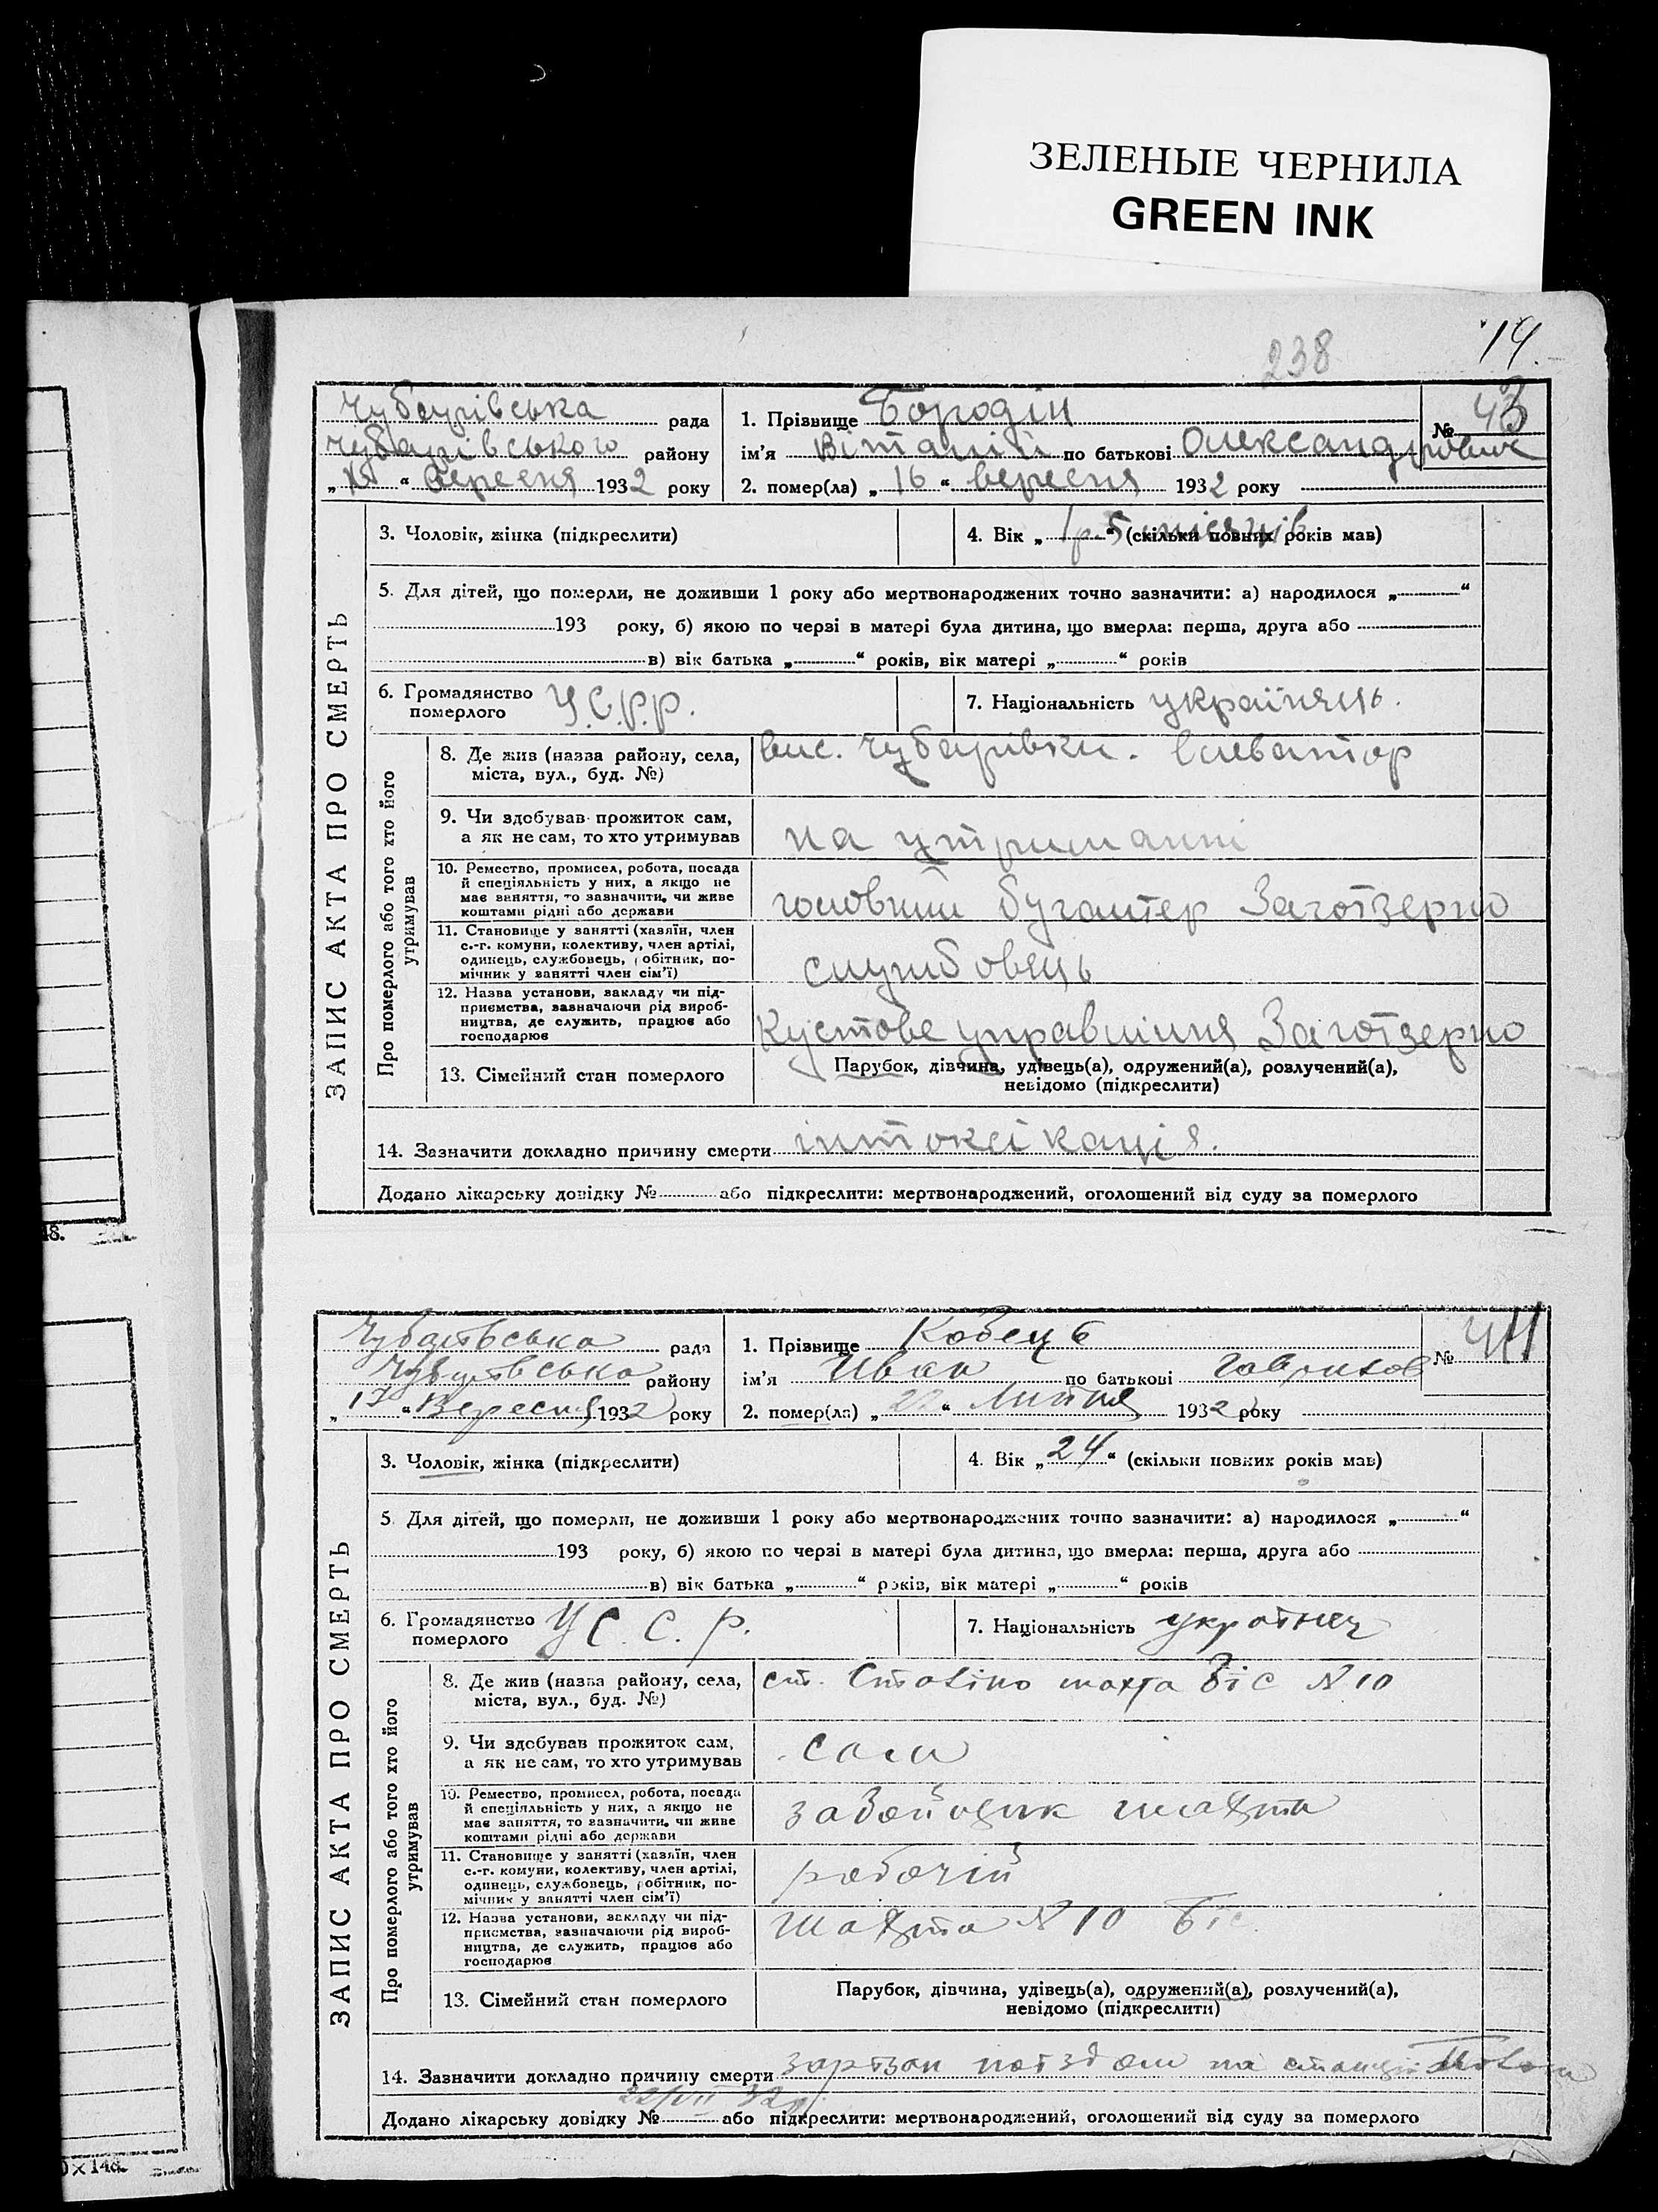 ЗЕЛЕНЫЕ ЧЕРНИЛА
GREEN INK
238
14.
Чубарівська рада
Чубарівського району
вересня 1932 року
1. Прізвище Бородін
№ 43
ім'я Віталій по батькові Олександрович
2. помер(ла) „16“ вересня 1932 року
ЗАПИС АКТА ПРО СМЕРТЬ
3. Чоловік, жінка (підкреслити)
4. Вік „1 р. 5 місяців“ (скільки повних років мав)
5. Для дітей, що померли, не доживши 1 року або мертвонароджених точно зазначити: а) народилося „ “
193 року, б) якою по черзі в матері була дитина, що вмерла: перша, друга або
в) вік батька „ “ років, вік матері „ “ років
6. Громадянство померлого У.С.Р.Р.
7. Національність українець.
Про померлого або того хто його утримував
8. Де жив (назва району, села,
міста, вул., буд. №)
вис. Чубарівки. Елеватор
9. Чи здобував прожиток сам,
а як не сам, то хто утримував
на утриманні
10. Ремество, промисел, робота, посада
й спеціяльність у них, а якщо не
має заняття, то зазначити, чи живе
коштами рідні або держави
головний бугалтер Заготзерно
11. Становище у занятті (хазяїн, член
с.-г. комуни, колективу, член артілі,
одинець, службовець, робітник, по-
мічник у занятті член сім'ї)
службовець
12. Назва установи, закладу чи під-
приємства, зазначаючи рід вироб-
ництва, де служить, працює або
господарює
Кустове управління Заготзерно
13. Сімейний стан померлого
Парубок, дівчина, удівець(а), одружений(а), розлучений(а),
невідомо (підкреслити)
14. Зазначити докладно причину смерти інтоксікація.
Додано лікарську довідку № або підкреслити: мертвонароджений, оголошений від суду за померлого
48.
Чубарівська рада
Чубарівська району
„17“ Вересня 1932 року
1. Прізвище Кобець
№ 44
ім'я Иван по батькові Гаврилов
2. помер(ла) „22“ Липня 1932 року
ЗАПИС АКТА ПРО СМЕРТЬ
3. Чоловік, жінка (підкреслити)
4. Вік „24“ (скільки повних років мав)
5. Для дітей, що померли, не доживши 1 року або мертвонароджених точно зазначити: а) народилося „ “
193 року, б) якою по черзі в матері була дитина, що вмерла: перша, друга або
в) вік батька „ “ років, вік матері „ “ років
6. Громадянство померлого У С. С. р.
7. Національність
Про померлого або того хто його утримував
8. Де жив (назва району, села,
міста, вул., буд. №)
ст. Сталіно шахта Біс № 10
9. Чи здобував прожиток сам,
а як не сам, то хто утримував
сам
10. Ремество, промисел, робота, посада
й спеціяльність у них, а якщо не
має заняття, то зазначити, чи живе
коштами рідні або держави
забойщик шахти
11. Становище у занятті (хазяїн, член
с.-г. комуни, колективу, член артілі,
одинець, службовець, робітник, по-
мічник у занятті член сім'ї)
рабочій
12. Назва установи, закладу чи під-
приємства, зазначаючи рід вироб-
ництва, де служить, працює або
господарює
Шахта № 10 Біс
13. Сімейний стан померлого
Парубок, дівчина, удівець(а), одружений(а), розлучений(а),
невідомо (підкреслити)
14. Зазначити докладно причину смерти зарізан поїздом на станции
22/VII 32 р.
Додано лікарську довідку № або підкреслити: мертвонароджений, оголошений від суду за померлого
×148.